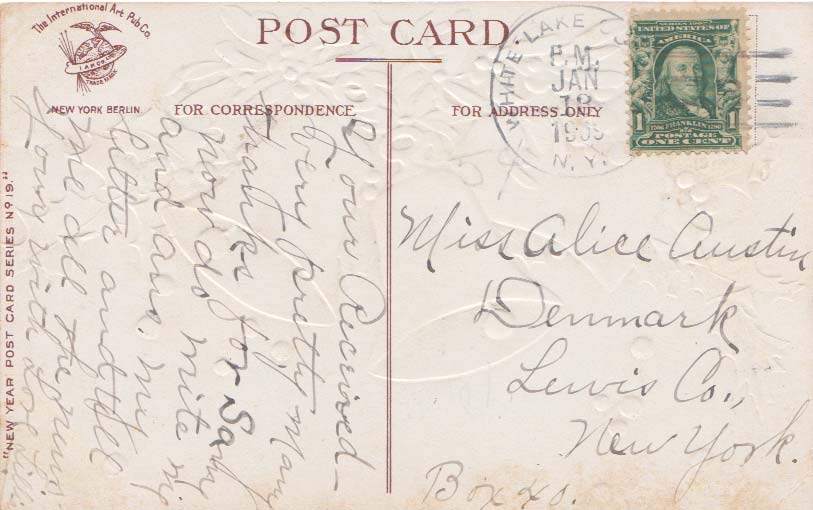 The International Art Pub Co.
TRADE MARK
NEW YORK BERLIN
POST CARD
FOR CORRESPONDENCE
FOR ADDRESS ONLY
WHITE LAKE
P.M.
JAN
N.Y.
SERIES 1902
UNITED STATES OF
AMERICA
1 1
1706 FRANKLIN 1790
POSTAGE
ONE CENT
Your Received—
Very pretty Many
thanks for Same
now do write
and ans. my
letter and tell
me all the news.
Yours with Love
Miss Alice Austin
Denmark
Lewis Co.,
New York.
Box
"NEW YEAR POST CARD SERIES No 19."